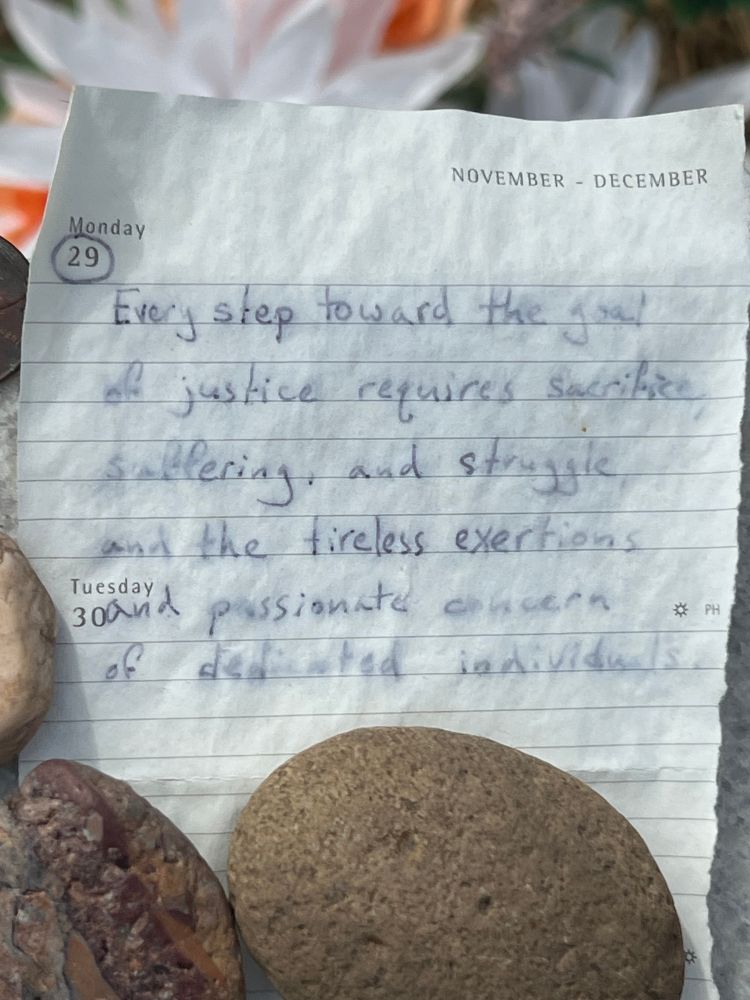 NOVEMBER - DECEMBER
Monday
29
Every step toward the goal
of justice requires sacrifice,
suffering, and struggle,
and the tireless exertions
Tuesday
30 and passionate concern
PH
of dedicated individuals.